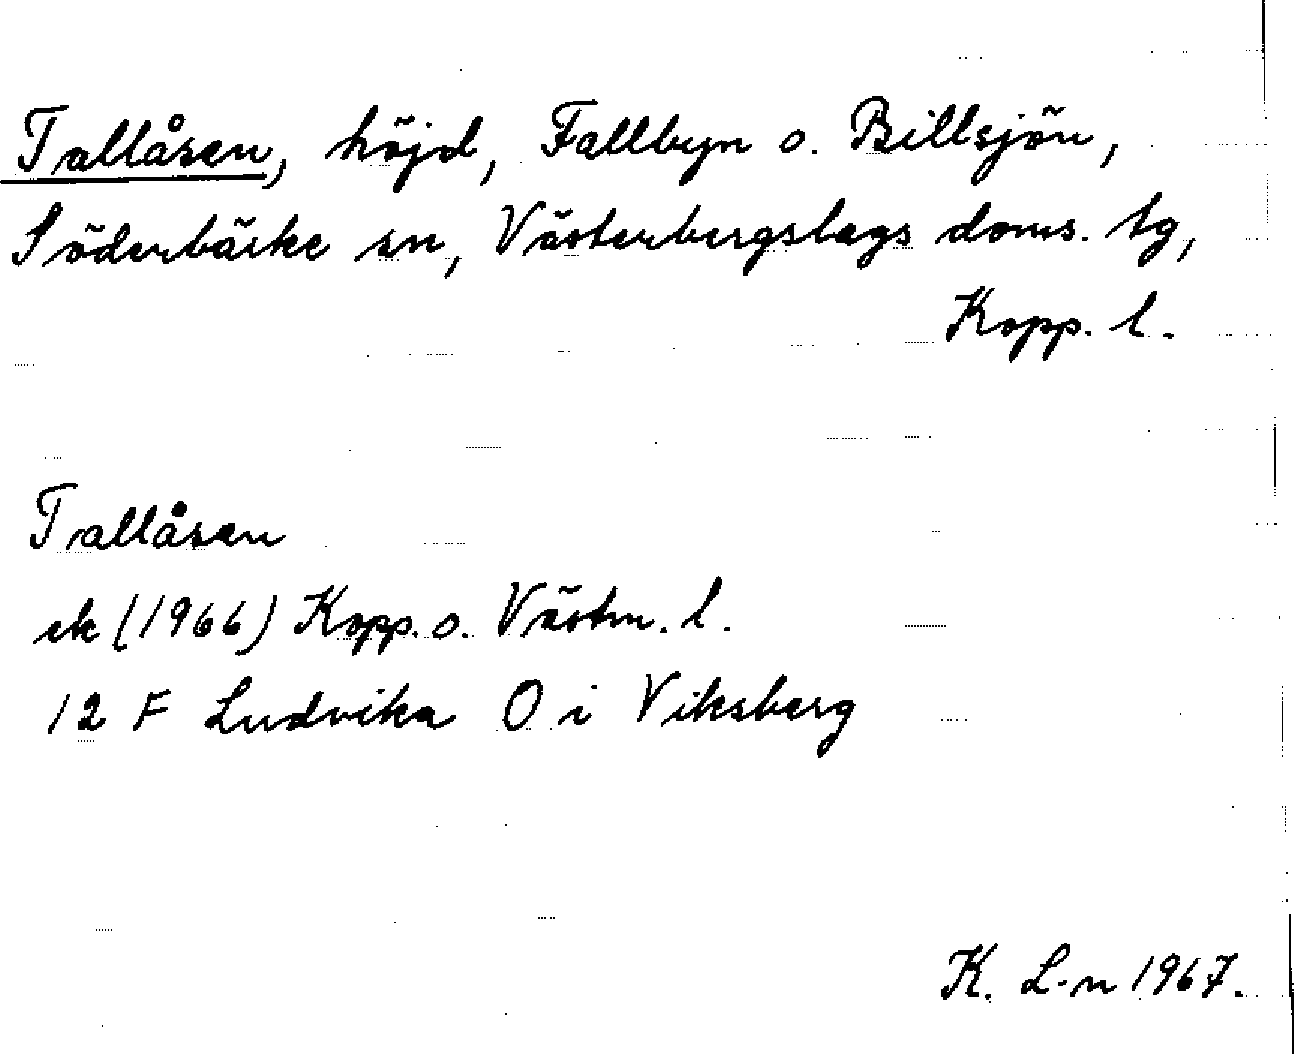 Tallåsen, höjd, Fallbyn o. Billsjön,
Söderbärke sn, Västerbergslags doms. tg,
Kopp. l.
Tallåsen
ek (1966) Kopp. o. Västm. l.
12 F Ludvika O i Viksberg
K. L-n 1967.